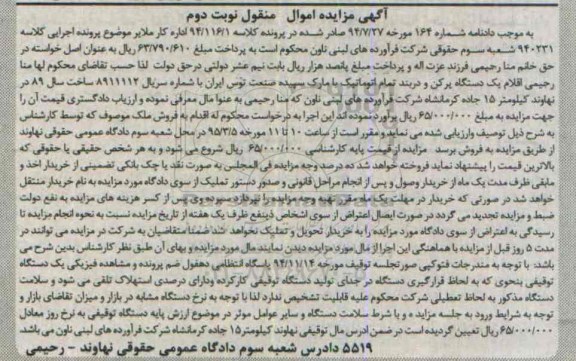 آگهی مزایده اموال منقول نوبت دوم
به موجب دادنامه شماره ۱۶۴ مورخه ۹۴/۷/۲۷ صادر شده در پرونده کلاسه ۹۴/۱۱۶/۱ اداره کار ملایر موضوع پرونده اجرایی کلاسه
۹۴۰۲۳۱ شعبه سوم حقوقی شرکت فرآورده های لبنی ناون محکوم است به پرداخت مبلغ ۶۳/۷۹۰/۶۱۰ ریال به عنوان اصل خواسته در
حق خانم منا رحیمی فرزند عزت اله و پرداخت مبلغ پانصد هزار ریال بابت نیم عشر دولتی درحق دولت لذا حسب تقاضای محکوم لها منا
رحیمی اقلام یک دستگاه پرکن و دربند تمام اتوماتیک با مارک سپید صنعت توس ایران با شماره سریال ۸۹۱۱۱۱۲ ساخت سال ۸۹ در
نهاوند کیلومتر ۱۵ جاده کرمانشاه شرکت فرآورده های لبنی ناون که منا رحیمی به عنوا مال معرفی نموده و ارزیاب دادگستری قیمت آن را
جهت مزایده به مبلغ ۶۵/۰۰۰/۰۰۰ ریال برآورد نموده اند این اجرا به درخواست محکوم له اقدام به فروش ملک موصوف که توسط کارشناس
به شرح ذیل توصیف وارزیابی شده می نماید و مقرر است از ساعت ۱۰ تا ۱۱ مورخه ۹۵/۳/۵ در محل شعبه سوم دادگاه عمومی حقوقی نهاوند
از طریق مزایده به فروش برسد . مزایده از قیمت پایه کارشناسی ۶۵/۰۰۰/۰۰۰ ریال شروع می شود و به هر شخص حقیقی یا حقوقی که
بالاترین قیمت را پیشنهاد نماید فروخته خواهد شد ده درصد وجه مزایده فی المجلس به صورت نقد یا چک بانکی تضمینی از خریدار اخذ و
مابقی ظرف مدت یک ماه از خریدار وصول و پس از انجام مراحل قانونی و صدور دستور تملیک از سوی دادگاه مورد مزایده به نام خریدار منتقل
خواهد شد در صورتی که خریدار در مهلت یک ماه بقیه وجه مزایده را نپردازد سپرده وی پس از کسر هزینه های مزایده به نفع دولت
ضبط و مزایده تجدید می گردد در صورت ایصال اعتراض از سوی اشخاص ذینفع ظرف یک هفته از تاریخ مزایده نسبت به نحوه انجام مزایده تا
رسیدگی به اعتراض از سوی دادگاه مورد مزایده را به خریدار تحویل و تملیک نخواهد شد ضمنا متقاضیان به شرکت در مزایده می توانند در
مدت ۵ روز قبل از مزایده با هماهنگی این اجرا از مال مورد مزایده دیدن نمایند مال مورد مزایده و بهای آن طبق نظر کارشناس بدین شرح می
باشد: با توجه به مندرجات فتوکپی صورتجلسه توقیف مورخه ۹۴/۱۱/۱۴ پاسگاه انتظامی دهفول ضم پرونده و مشاهده فیزیکی یک دستگاه
توقیفی بنحوی که به لحاظ قرارگیری دستگاه در جدای تولید دستگاه توقیفی کارکرده ودارای درصدی استهلاک تلقی می شود و سلامت
دستگاه مذکور به لحاظ تعطیلی شرکت محکوم علیه قابلیت تشخیص ندارد لذا با توجه به نرخ دستگاه مشابه در بازار و میزان تقاضای بازار و
توجه به شرایط ورود به جلسه مزایده و یا شرط سلامت دستگاه و سایر عوامل موثر در موضوع ارزش پایه دستگاه توقیفی به نرخ روز معادل
۶۵/۰۰۰/۰۰۰ ریال تعیین گردیده است در ضمن ادرس مال توقیفی نهاوند کیلومتر ۱۵ جاده کرمانشاه شرکت فرآورده های لبنی ناون می باشد.
۵۵۱۹ دادرس شعبه سوم دادگاه عمومی حقوقی نهاوند - رحیمی